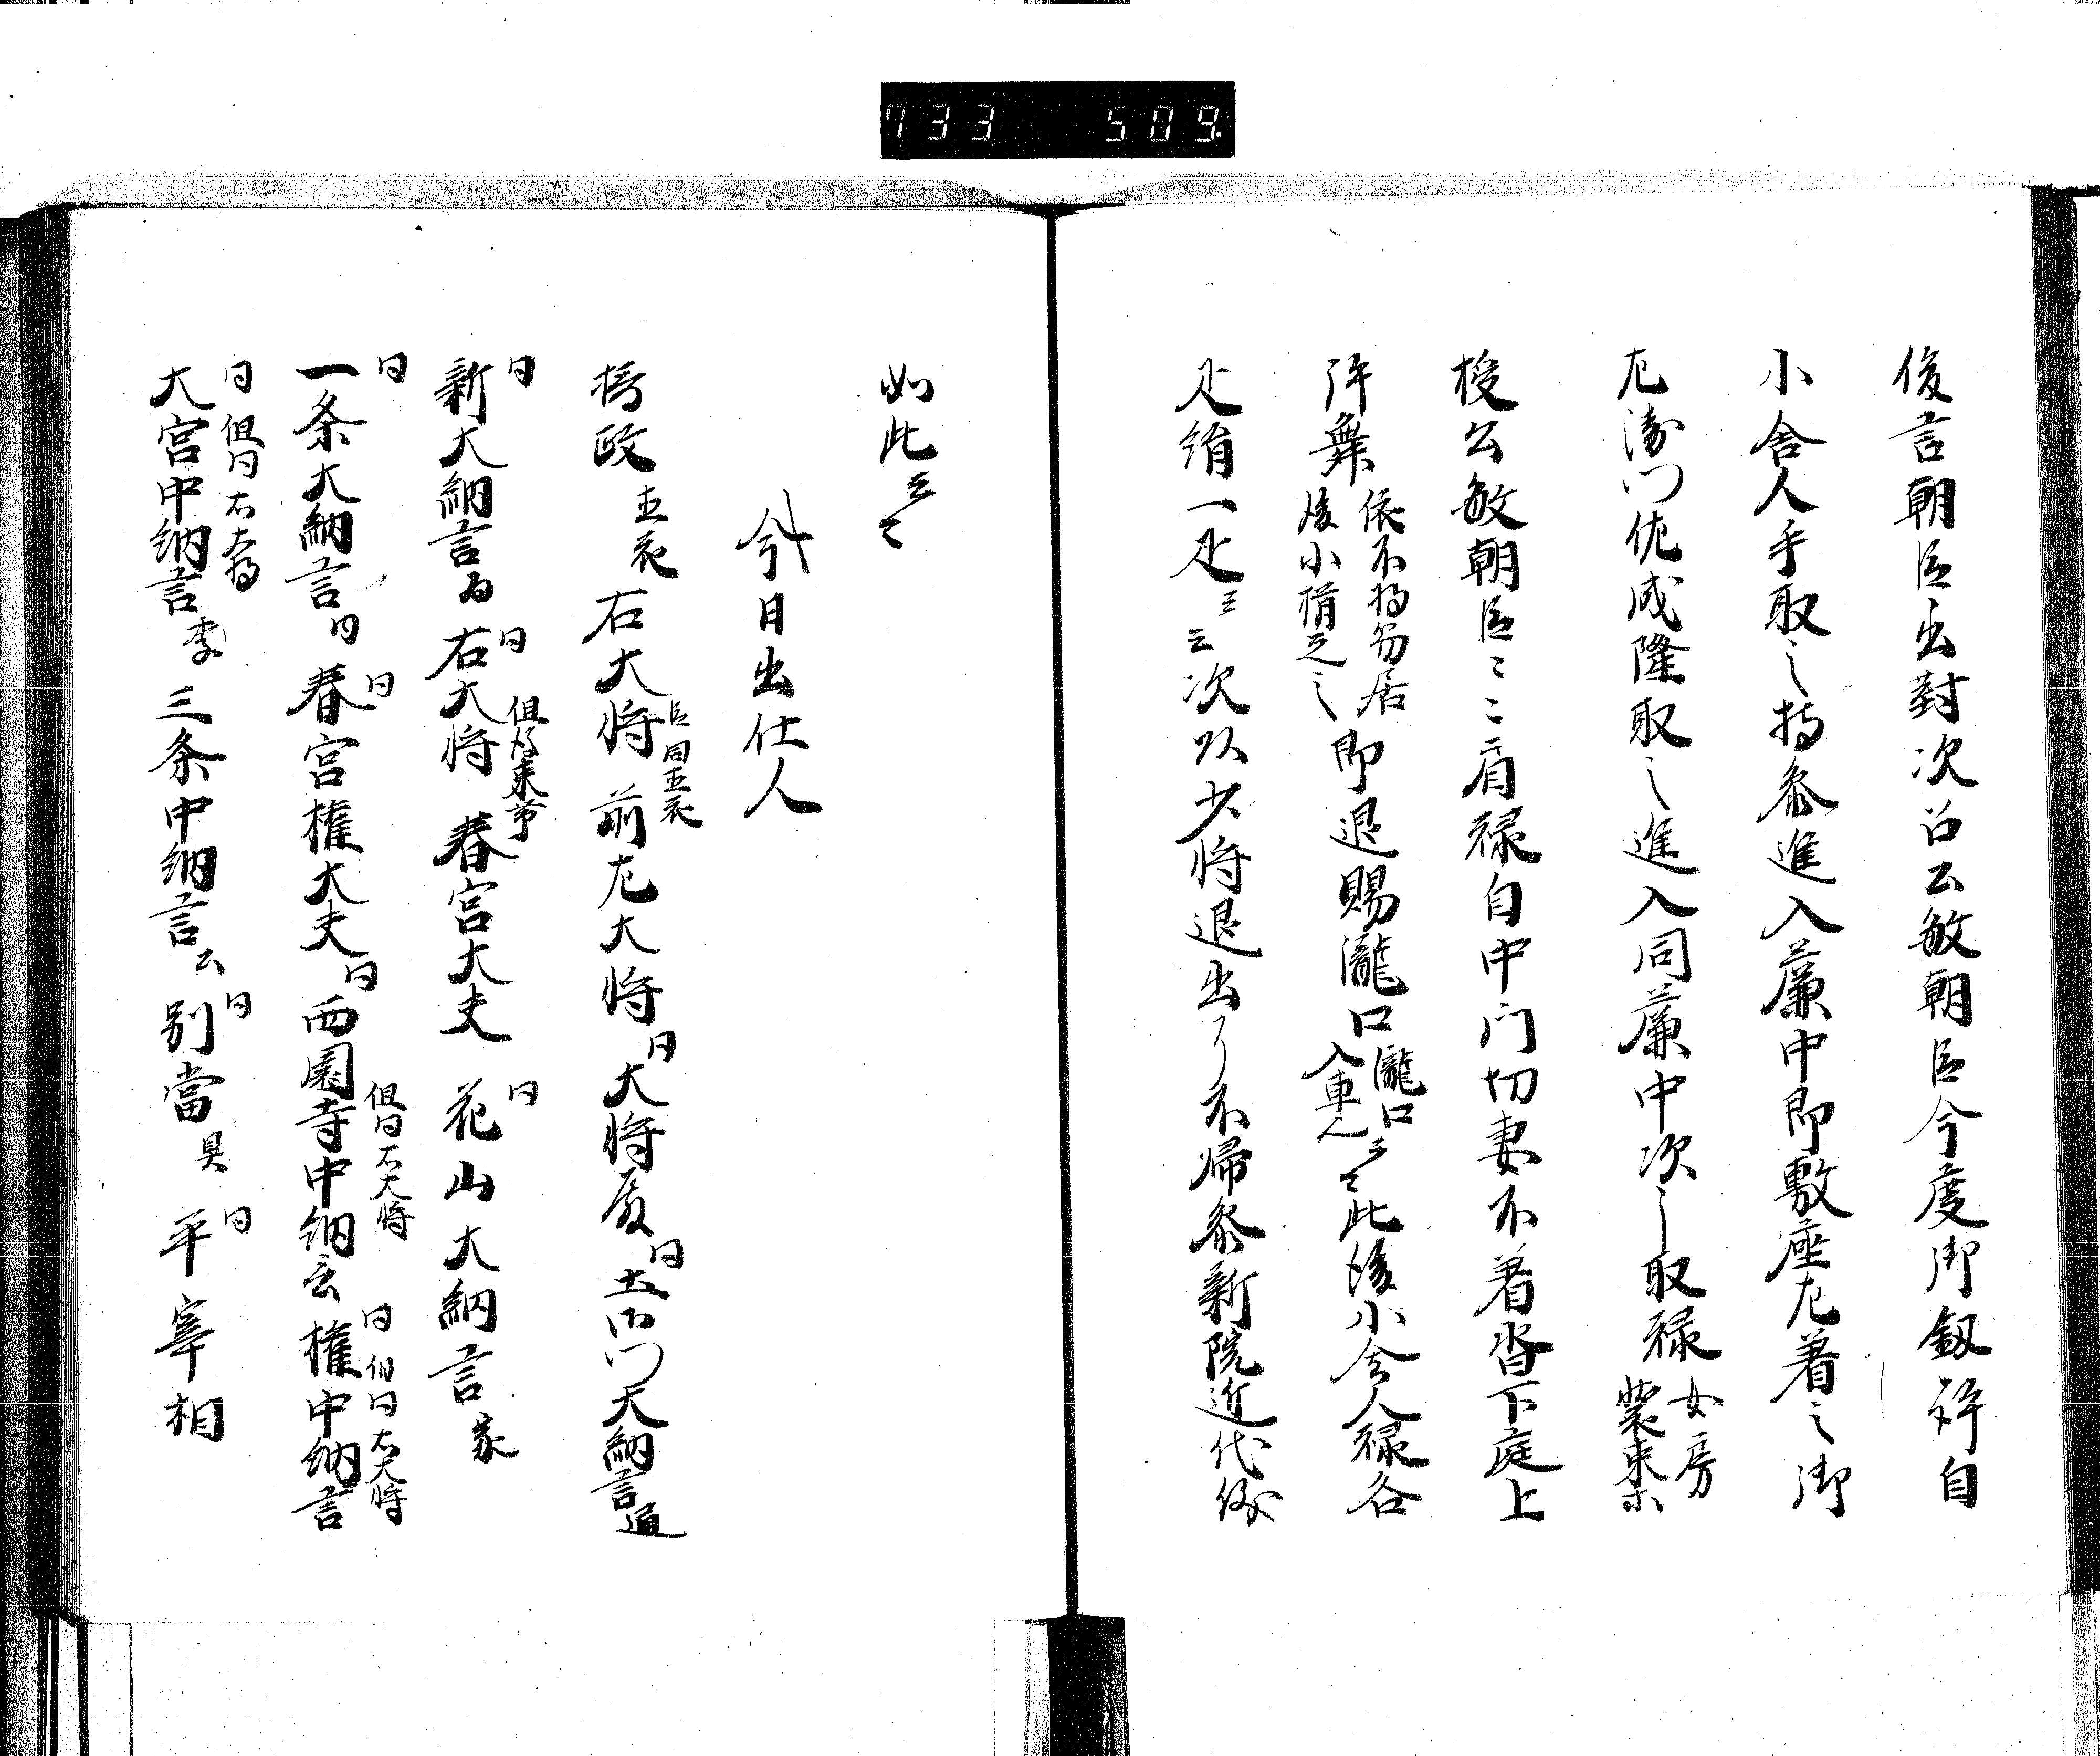 733 509
俊言朝臣出對次召公敏朝臣今度御釼許自
小舎人手取之持参進入簾中即敷座左着之御
左衛門佐成隆取之進入同簾中次之取禄女房装束
授公敏朝臣〻〻肩禄自中門切妻不着沓下庭上
拝舞依不持笏居後小揖之即退賜瀧口瀧口入車云々此後小舎人禄各
疋絹一疋云々次以少将退出了不帰参新院近代儀
如此云々
今日出仕人
摂政直衣右大将同直衣前左大将同大将殿同土御門大納言通
同新大納言同右大将但束帯春宮大夫同花山大納言家
同一条大納言内同春宮権大夫同西園寺中納言但同右大将権中納言同但同右大将
大宮中納言季同但同右大将三条中納言公同別當具同平宰相